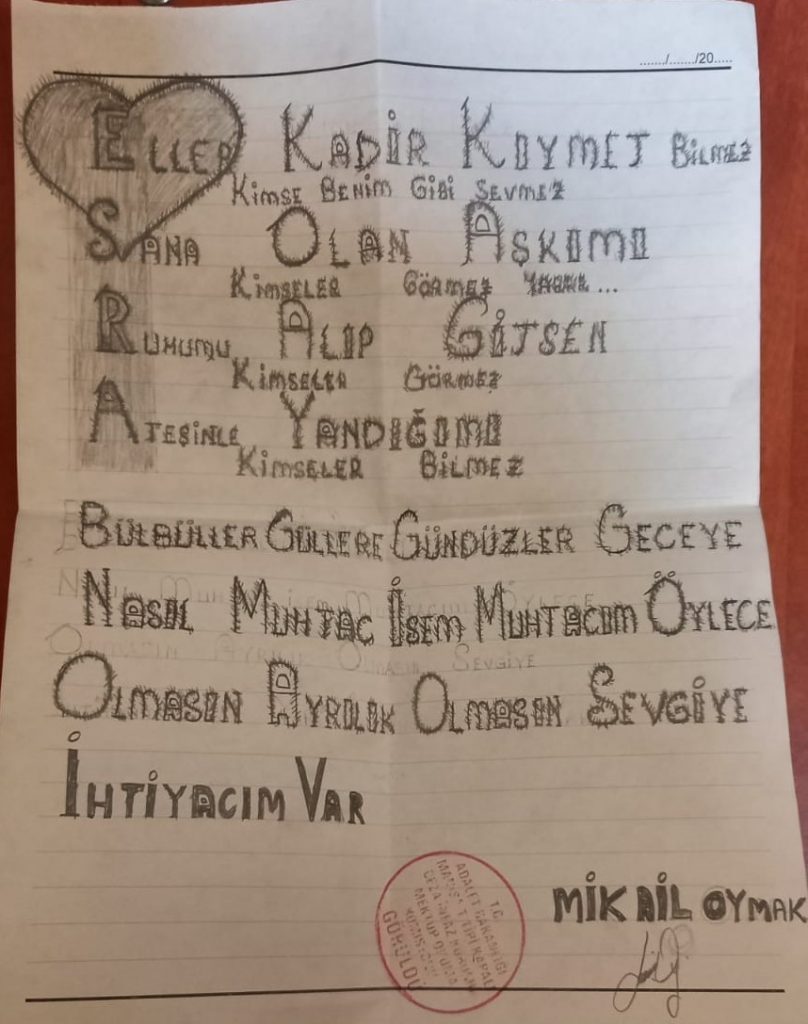 ....../....../20.....
ELLER KADİR KIYMET BİLMEZ
KİMSE BENİM GİBİ SEVMEZ
SANA OLAN AŞKIMI
KİMSELER GÖRMEZ ...
RUHUMU ALIP GİTSEN
KİMSELER GÖRMEZ
ATEŞİNLE YANDIĞIMI
KİMSELER BİLMEZ
BÜLBÜLLER GÜLLERE GÜNDÜZLER GECEYE
NASIL MUHTAÇ İSEM MUHTACIM ÖYLECE
OLMASIN AYRILIK OLMASIN SEVGİYE
İHTİYACIM VAR
MİKAİL OYMAK
T.C.
ADALET BAKANLIĞI
T TİPİ KAPALI
CEZA İNFAZ KURUMU
MEKTUP OKUMA
KOMİSYONU
GÖRÜLDÜ